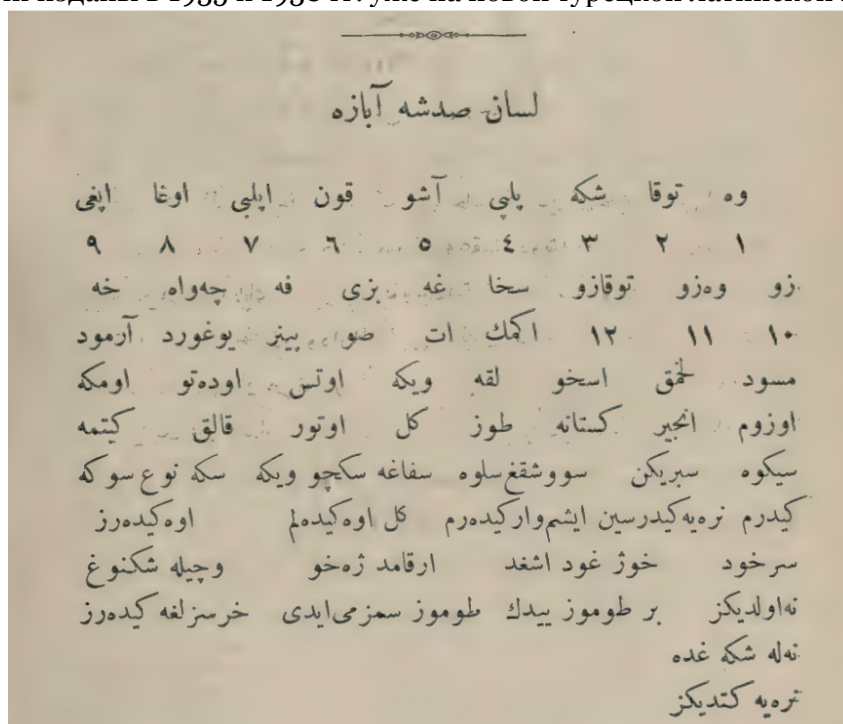 لسان صدشه آبازه
وه توقا شكه پلپی آشو قون ایلبی اوغا اپغی
١ ٢ ٣ ٤ ٥ ٦ ٧ ٨ ٩
زو وەزو توقازو سخا غه بزی فه چەواه خه
١٠ ١١ ١٢ اكمك ات صو پینر یوغورد آرمود
مسود لخمق اسخو لقه ویكه اوتس اودەتو اومكه
اوزوم انجیر كستانه طوز كل اوتور قالق كیتمه
سیكوه سبریكن سووشقغ سلوه سفاغه سكچو ویكه سكه نوع سوكه
كیدرم نرەیه كیدرسین ایشم وار كیدەرم كل اوه كیدەلم اوه كیدەرز
سرخود خوژ غود اشغد ارقامد ژەخو وچیله شكنوغ
نه اولدیكز بر طوموز ییدك طوموز سمزمی ایدی خرسزلغه كیدەرز
نەله شكه غده
نرەیه كتدیكز